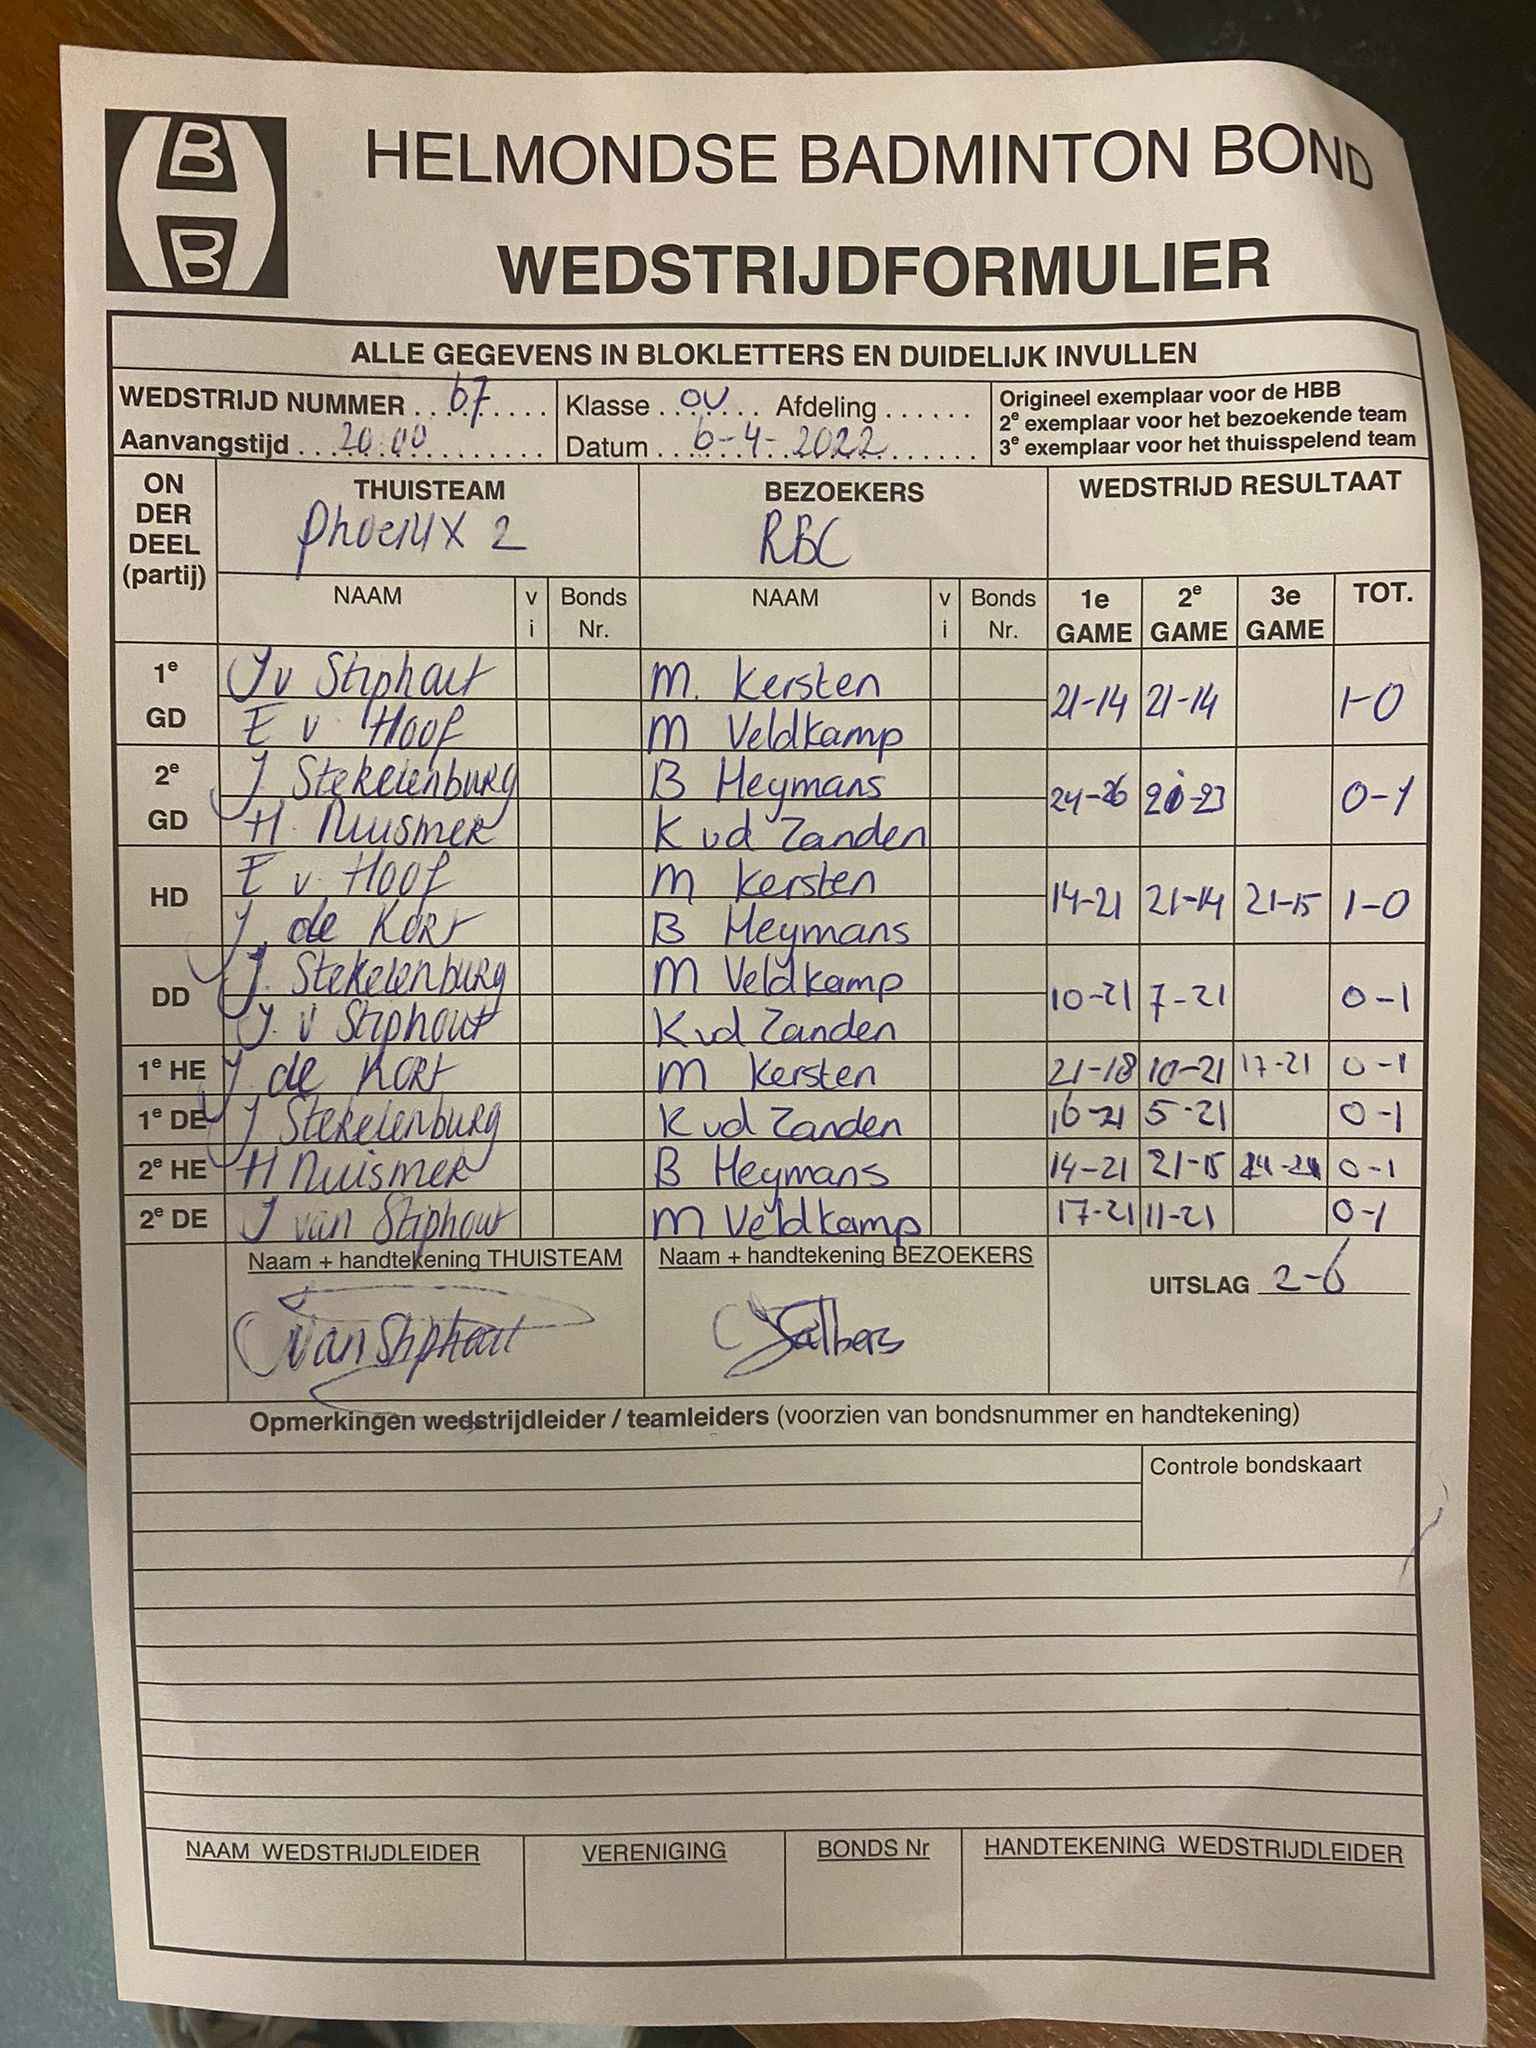 B
B
HELMONDSE BADMINTON BOND
WEDSTRIJDFORMULIER
ALLE GEGEVENS IN BLOKLETTERS EN DUIDELIJK INVULLEN
WEDSTRIJD NUMMER . . 67 . . . . .
Aanvangstijd . . . 20.00 . . . . . . . . .
Klasse . . OU . . . Afdeling . . . . . .
Datum . . . 6-4-2022 . . . . . . .
Origineel exemplaar voor de HBB
2e exemplaar voor het bezoekende team
3e exemplaar voor het thuisspelend team
ON DER DEEL (partij) THUISTEAM BEZOEKERS WEDSTRIJD RESULTAAT
Phoenix 2 RBC
NAAM v i Bonds Nr. NAAM v i Bonds Nr. 1e GAME 2e GAME 3e GAME TOT.
1e GD J v Stiphout M. Kersten 21-14 21-14 1-0
E v. Hoof M Veldkamp
2e GD J. Stekelenburg B Heymans 24-26 21-23 0-1
H. Nuismer K vd Zanden
HD E v. Hoof M Kersten 14-21 21-14 21-15 1-0
J. de Kort B Heymans
DD J. Stekelenburg M Veldkamp 10-21 7-21 0-1
J. v Stiphout K vd Zanden
1e HE J. de Kort M Kersten 21-18 10-21 17-21 0-1
1e DE J Stekelenburg K vd Zanden 16-21 5-21 0-1
2e HE H Nuismer B Heymans 14-21 21-15 0-1
2e DE J van Stiphout M Veldkamp 17-21 11-21 0-1
Naam + handtekening THUISTEAM Naam + handtekening BEZOEKERS
UITSLAG 2-6
van Stiphout
Opmerkingen wedstrijdleider / teamleiders (voorzien van bondsnummer en handtekening)
Controle bondskaart
NAAM WEDSTRIJDLEIDER VERENIGING BONDS Nr HANDTEKENING WEDSTRIJDLEIDER